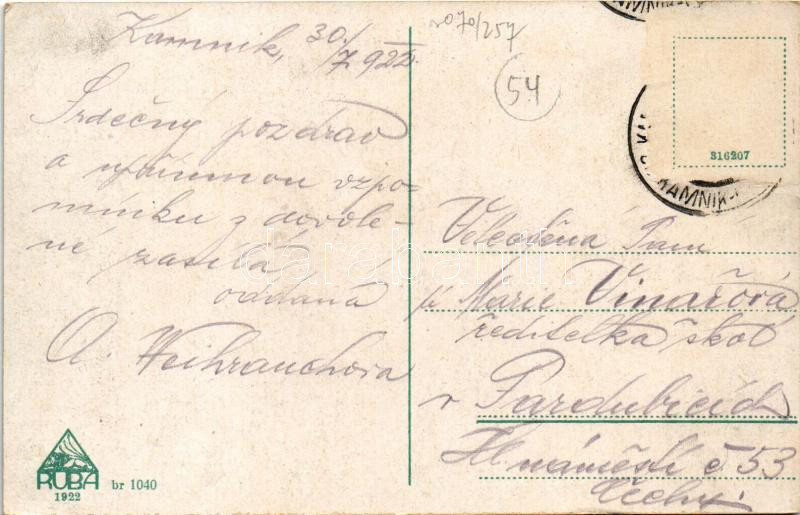 Kamnik, 30/7 922
Srdečný pozdrav
a upřímnou vzpo-
mínku z dovole-
né zasílá
oddaná
A. Weihrauchova
RUBA
1922
br 1040
2070/257
54
316207
KAMNIK
Velectěná Paní
pí Marie Vinařová
ředitelka škol
v Pardubicích
Hl. náměstí č 53
Čechy.
darabanth